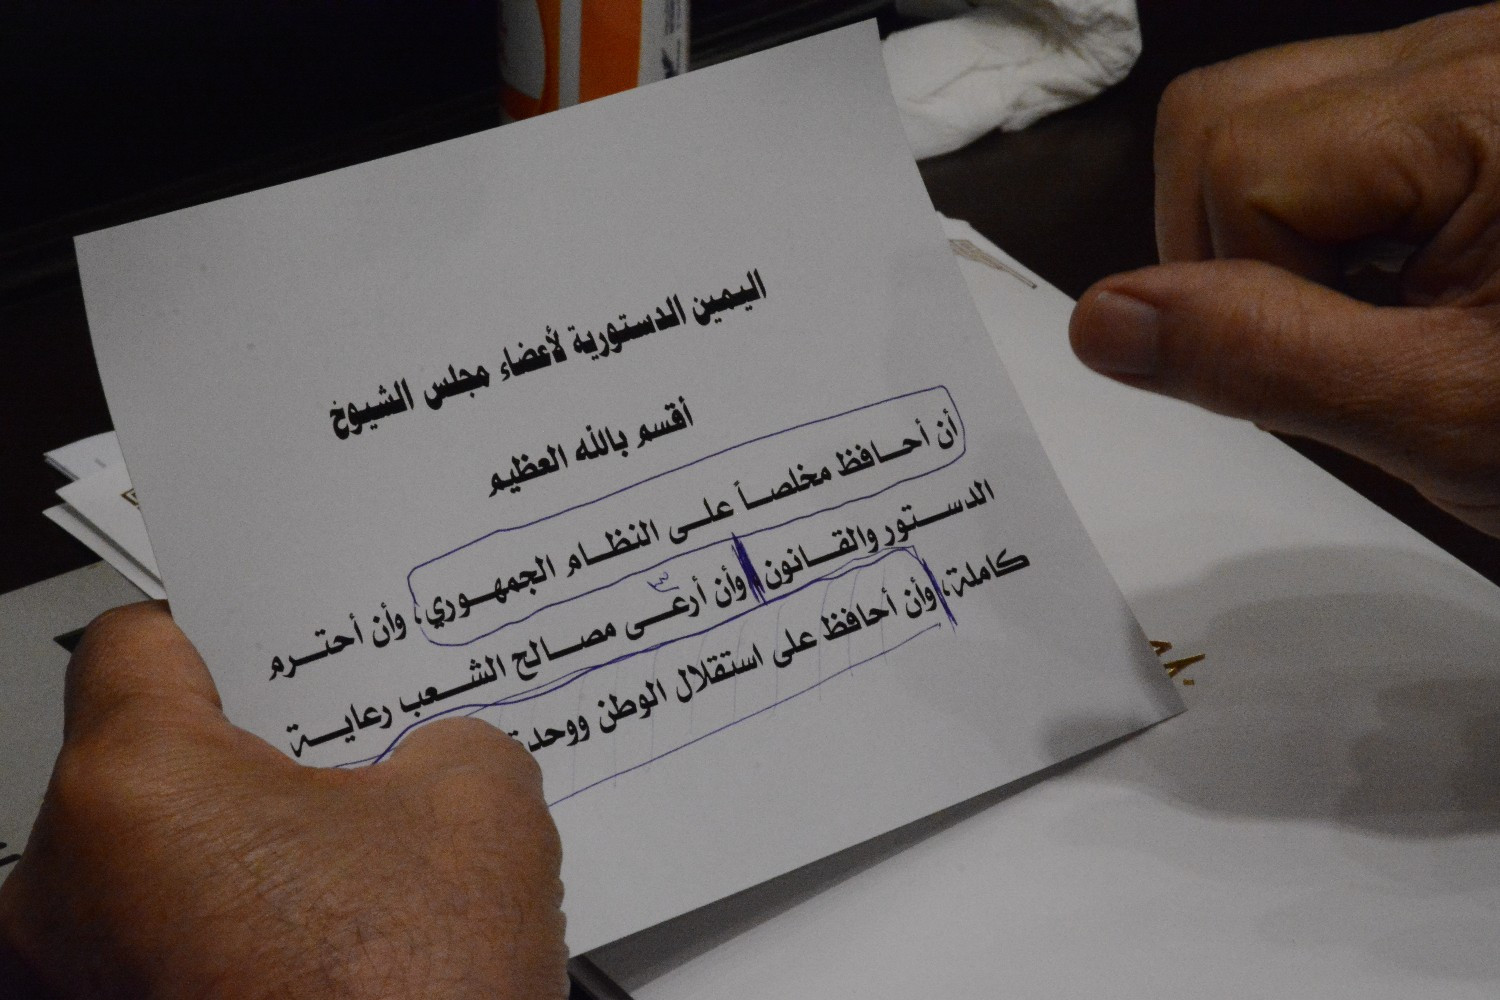 اليمين الدستورية لأعضاء مجلس الشيوخ
أقسم بالله العظيم
أن أحـافظ مخلصـاً علـى النظـام الجمهـوري، وأن أحتـرم
الدسـتور والقـانون، وأن أرعـى مصـالح الشـعب رعايـة
كاملة، وأن أحافظ على استقلال الوطن ووحدة